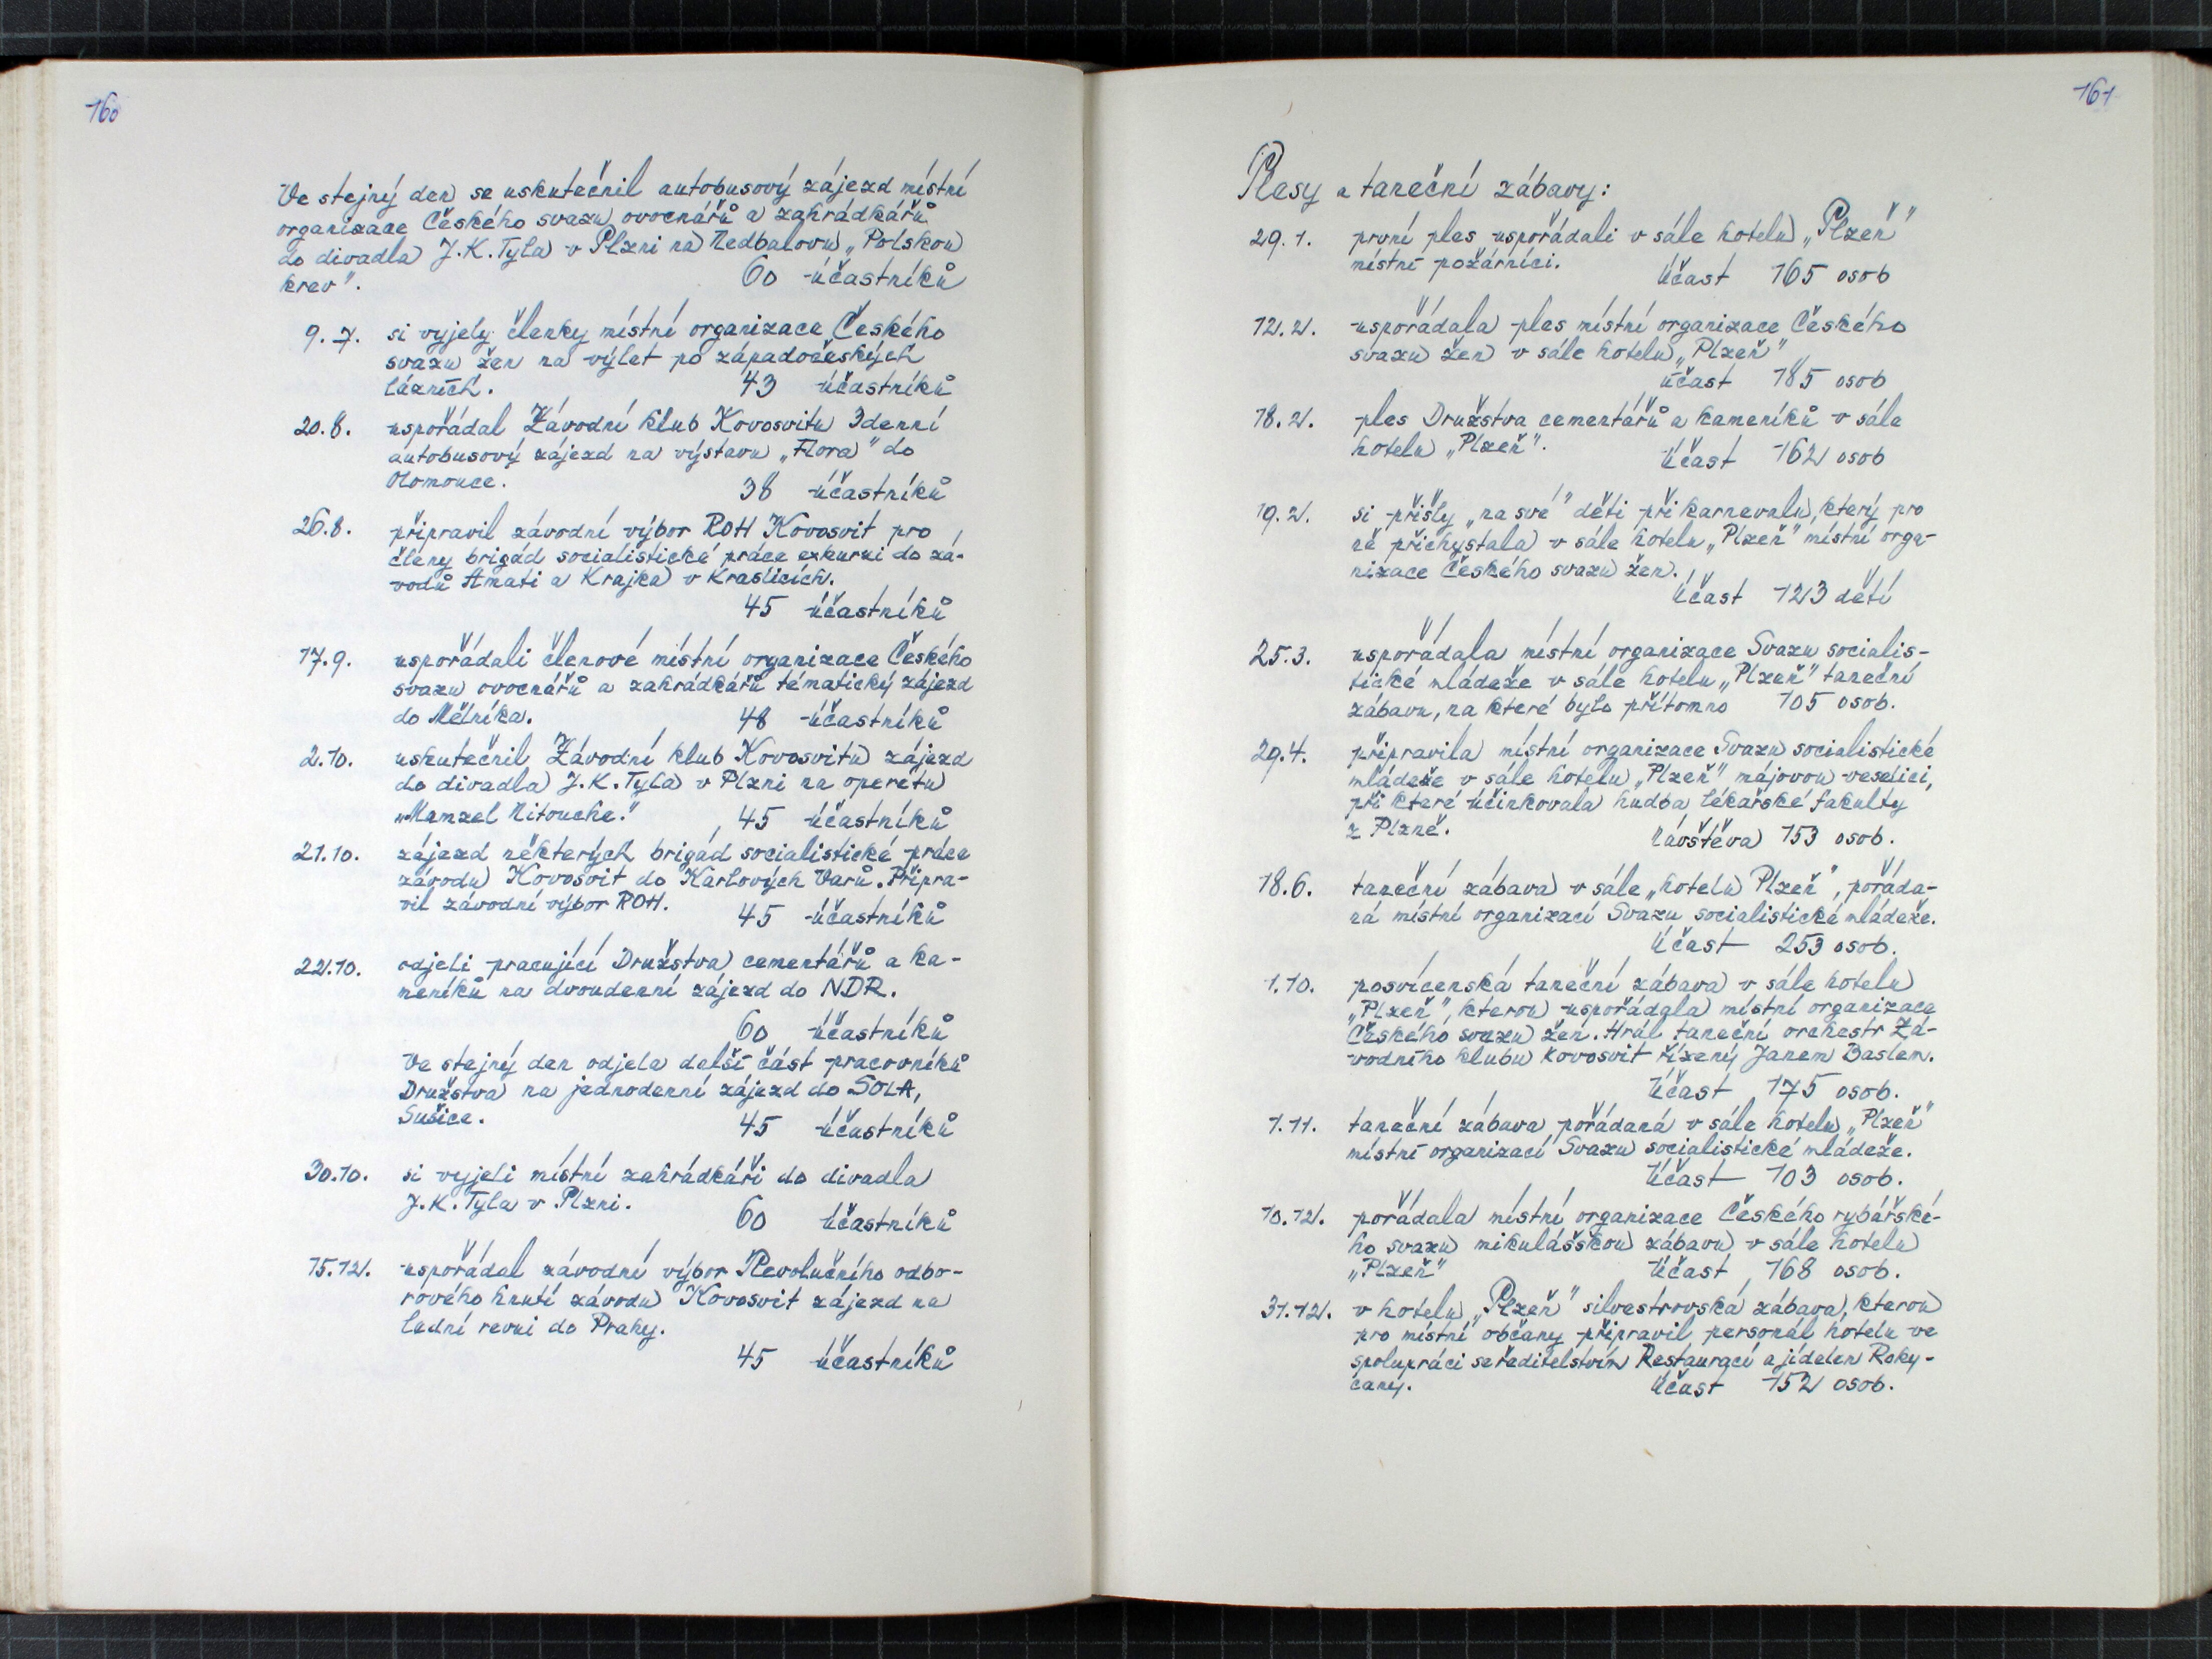 160
Ve stejný den se uskutečnil autobusový zájezd místní
organizace Českého svazu ovocnářů a zahrádkářů
do divadla J.K.Tyla v Plzni na Nedbalovu „Polskou
krev".
60 účastníků
9.7. si vyjely členky místní organizace Českého
svazu žen na výlet po západočeských
lázních. 43 účastníků
20.8. uspořádal Závodní klub Kovosvitu 3denní
autobusový zájezd na výstavu „Flora" do
Olomouce. 38 účastníků
26.8. připravil závodní výbor ROH Kovosvit pro
členy brigád socialistické práce exkurzi do zá-
vodů Amati a Krajka v Kraslicích.
45 účastníků
17.9. uspořádali členové místní organizace Českého
svazu ovocnářů a zahrádkářů tématický zájezd
do Mělníka. 48 účastníků
2.10. uskutečnil Závodní klub Kovosvitu zájezd
do divadla J.K.Tyla v Plzni na operetu
„Mamzel Nitouche." 45 účastníků
21.10. zájezd některých brigád socialistické práce
závodu Kovosvit do Karlových Varů. Připra-
vil závodní výbor ROH. 45 účastníků
22.10. odjeli pracující Družstva cementářů a ka-
meníků na dvoudenní zájezd do NDR.
60 účastníků
Ve stejný den odjela další část pracovníků
Družstva na jednodenní zájezd do SOLA,
Sušice. 45 účastníků
30.10. si vyjeli místní zahrádkáři do divadla
J.K.Tyla v Plzni. 60 účastníků
15.12. uspořádal závodní výbor Revolučního odbo-
rového hnutí závodu Kovosvit zájezd na
lední revui do Prahy.
45 účastníků
161
Plesy a taneční zábavy:
29.1. první ples uspořádali v sále hotelu „Plzeň"
místní požárníci. Účast 165 osob
12.2. uspořádala ples místní organizace Českého
svazu žen v sále hotelu „Plzeň"
účast 185 osob
18.2. ples Družstva cementářů a kameníků v sále
hotelu „Plzeň". Účast 162 osob
19.2. si přišly „na své" děti při karnevalu, který pro
ně přichystala v sále hotelu „Plzeň" místní orga-
nizace Českého svazu žen.
Účast 123 dětí
25.3. uspořádala místní organizace Svazu socialis-
tické mládeže v sále hotelu „Plzeň" taneční
zábavu, na které bylo přítomno 105 osob.
29.4. připravila místní organizace Svazu socialistické
mládeže v sále hotelu „Plzeň" májovou veselici,
při které účinkovala hudba lékařské fakulty
z Plzně. Návštěva 153 osob.
18.6. taneční zábava v sále „hotelu Plzeň", pořáda-
ná místní organizací Svazu socialistické mládeže.
Účast 253 osob.
1.10. posvícenská taneční zábava v sále hotelu
„Plzeň", kterou uspořádala místní organizace
Českého svazu žen. Hrál taneční orchestr Zá-
vodního klubu Kovosvit řízený Janem Baslem.
Účast 175 osob.
1.11. taneční zábava pořádaná v sále hotelu „Plzeň"
místní organizací Svazu socialistické mládeže.
Účast 103 osob.
10.12. pořádala místní organizace Českého rybářské-
ho svazu mikulášskou zábavu v sále hotelu
„Plzeň" Účast 168 osob.
31.12. v hotelu „Plzeň" silvestrovská zábava, kterou
pro místní občany připravil personál hotelu ve
spolupráci se ředitelstvím Restaurací a jídelen Roky-
cany. Účast 152 osob.